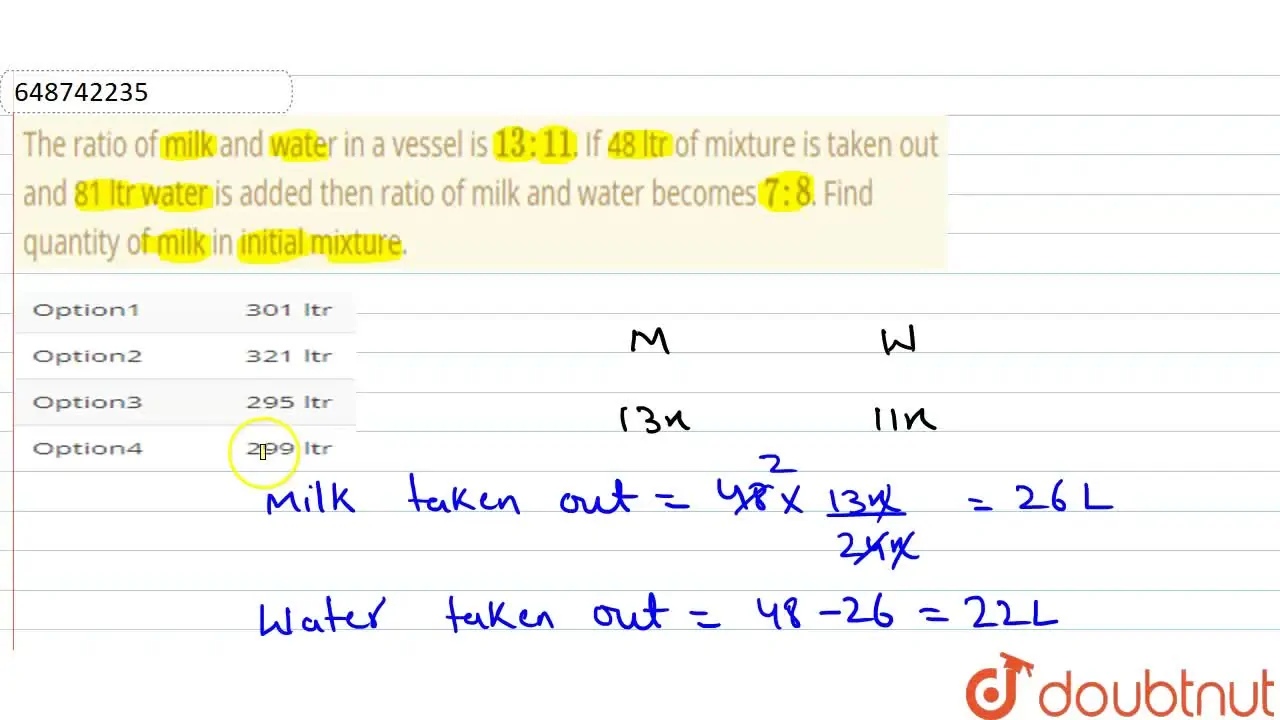 648742235
The ratio of milk and water in a vessel is 13:11. If 48 ltr of mixture is taken out
and 81 ltr water is added then ratio of milk and water becomes 7:8. Find
quantity of milk in initial mixture.
Option1 301 ltr
Option2 321 ltr
Option3 295 ltr
Option4 299 ltr
M W
13x 11x
Milk taken out = 48 × 13x/24x = 26 L
2
Water taken out = 48 - 26 = 22L
doubtnut